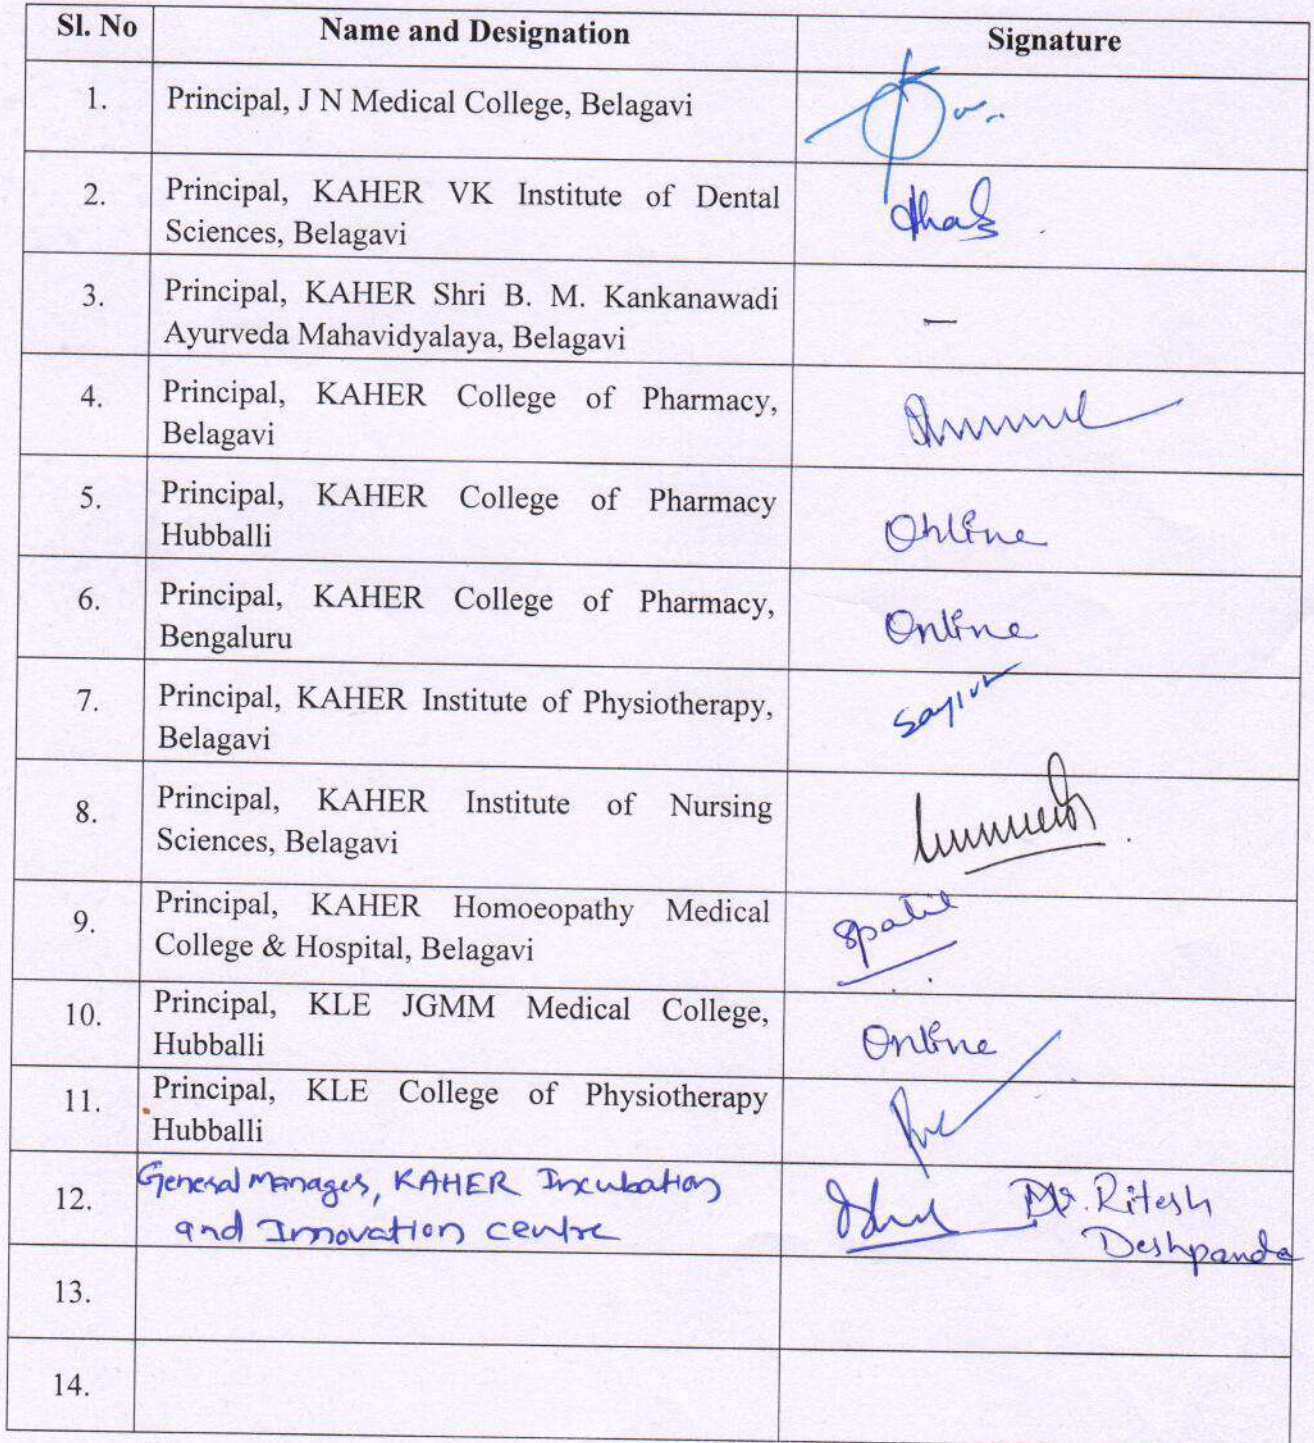 Sl. No Name and Designation Signature
1. Principal, J N Medical College, Belagavi
2. Principal, KAHER VK Institute of Dental
Sciences, Belagavi
3. Principal, KAHER Shri B. M. Kankanawadi
Ayurveda Mahavidyalaya, Belagavi –
4. Principal, KAHER College of Pharmacy,
Belagavi
5. Principal, KAHER College of Pharmacy
Hubballi Online
6. Principal, KAHER College of Pharmacy,
Bengaluru Online
7. Principal, KAHER Institute of Physiotherapy,
Belagavi
8. Principal, KAHER Institute of Nursing
Sciences, Belagavi
9. Principal, KAHER Homoeopathy Medical
College & Hospital, Belagavi Spatil
10. Principal, KLE JGMM Medical College,
Hubballi Online
11. Principal, KLE College of Physiotherapy
Hubballi
12. General Manager, KAHER Incubation
and Innovation centre
Mr. Ritesh
Deshpande
13.
14.